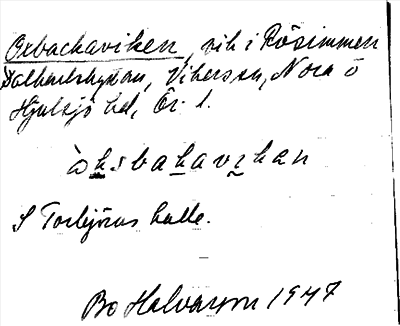 Oxbackaviken, vik i Rösimmen
Dalkarlshyttan, Vikers sn, Nora o
Hjulsjö hd, Ör. l.
òksbakavikan
S Torbjörns kulle.
Bo Halvarson 1947